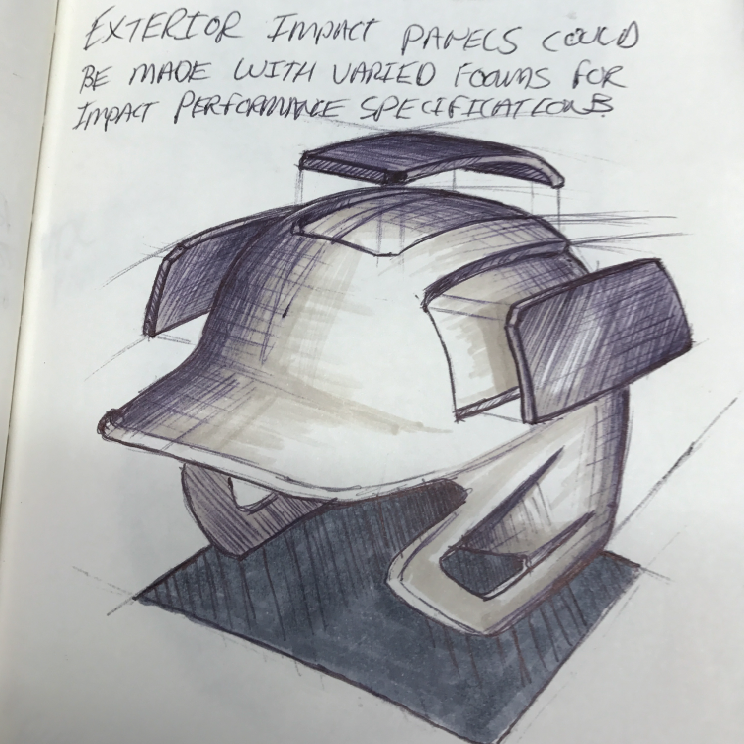 EXTERIOR IMPACT PANELS COULD
BE MADE WITH VARIED FOAMS FOR
IMPACT PERFORMANCE SPECIFICATIONS